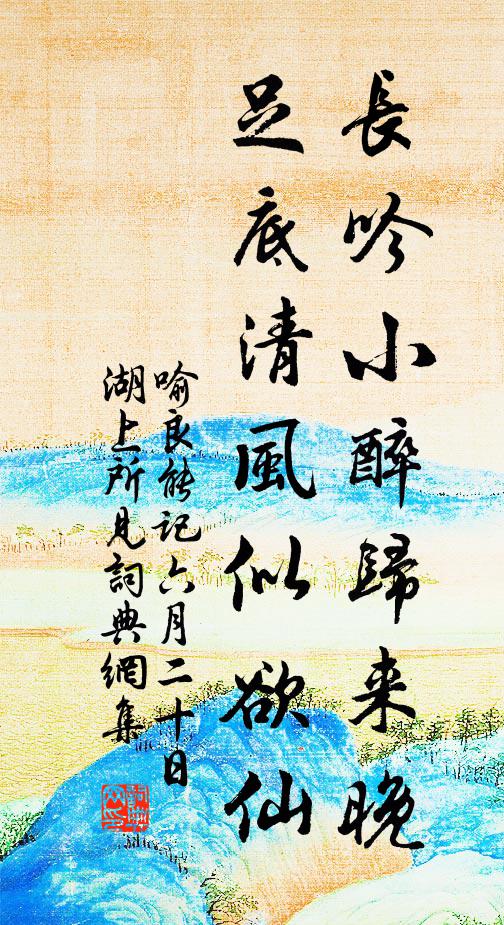 長吟小醉歸来晚
足底清風似欲仙
喻良能記六月二十日
湖上所見詞典網集